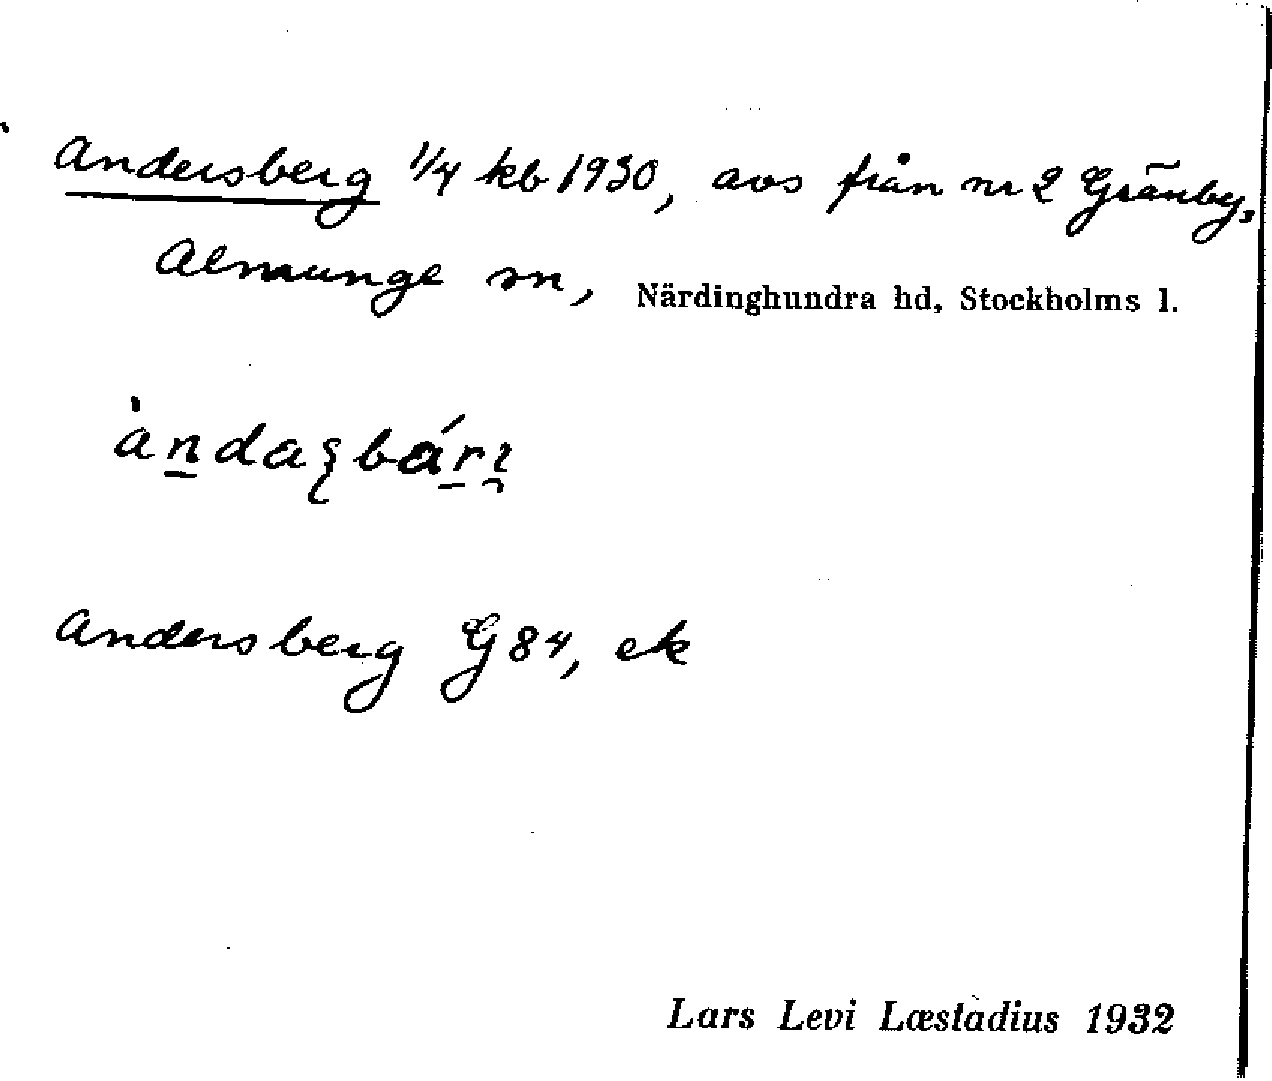 Andersberg 1/4 kb 1930, avs från nr 2 Gränby,
Almunge sn, Närdinghundra hd, Stockholms l.
Andersberg G 84, ek
Lars Levi Læstadius 1932